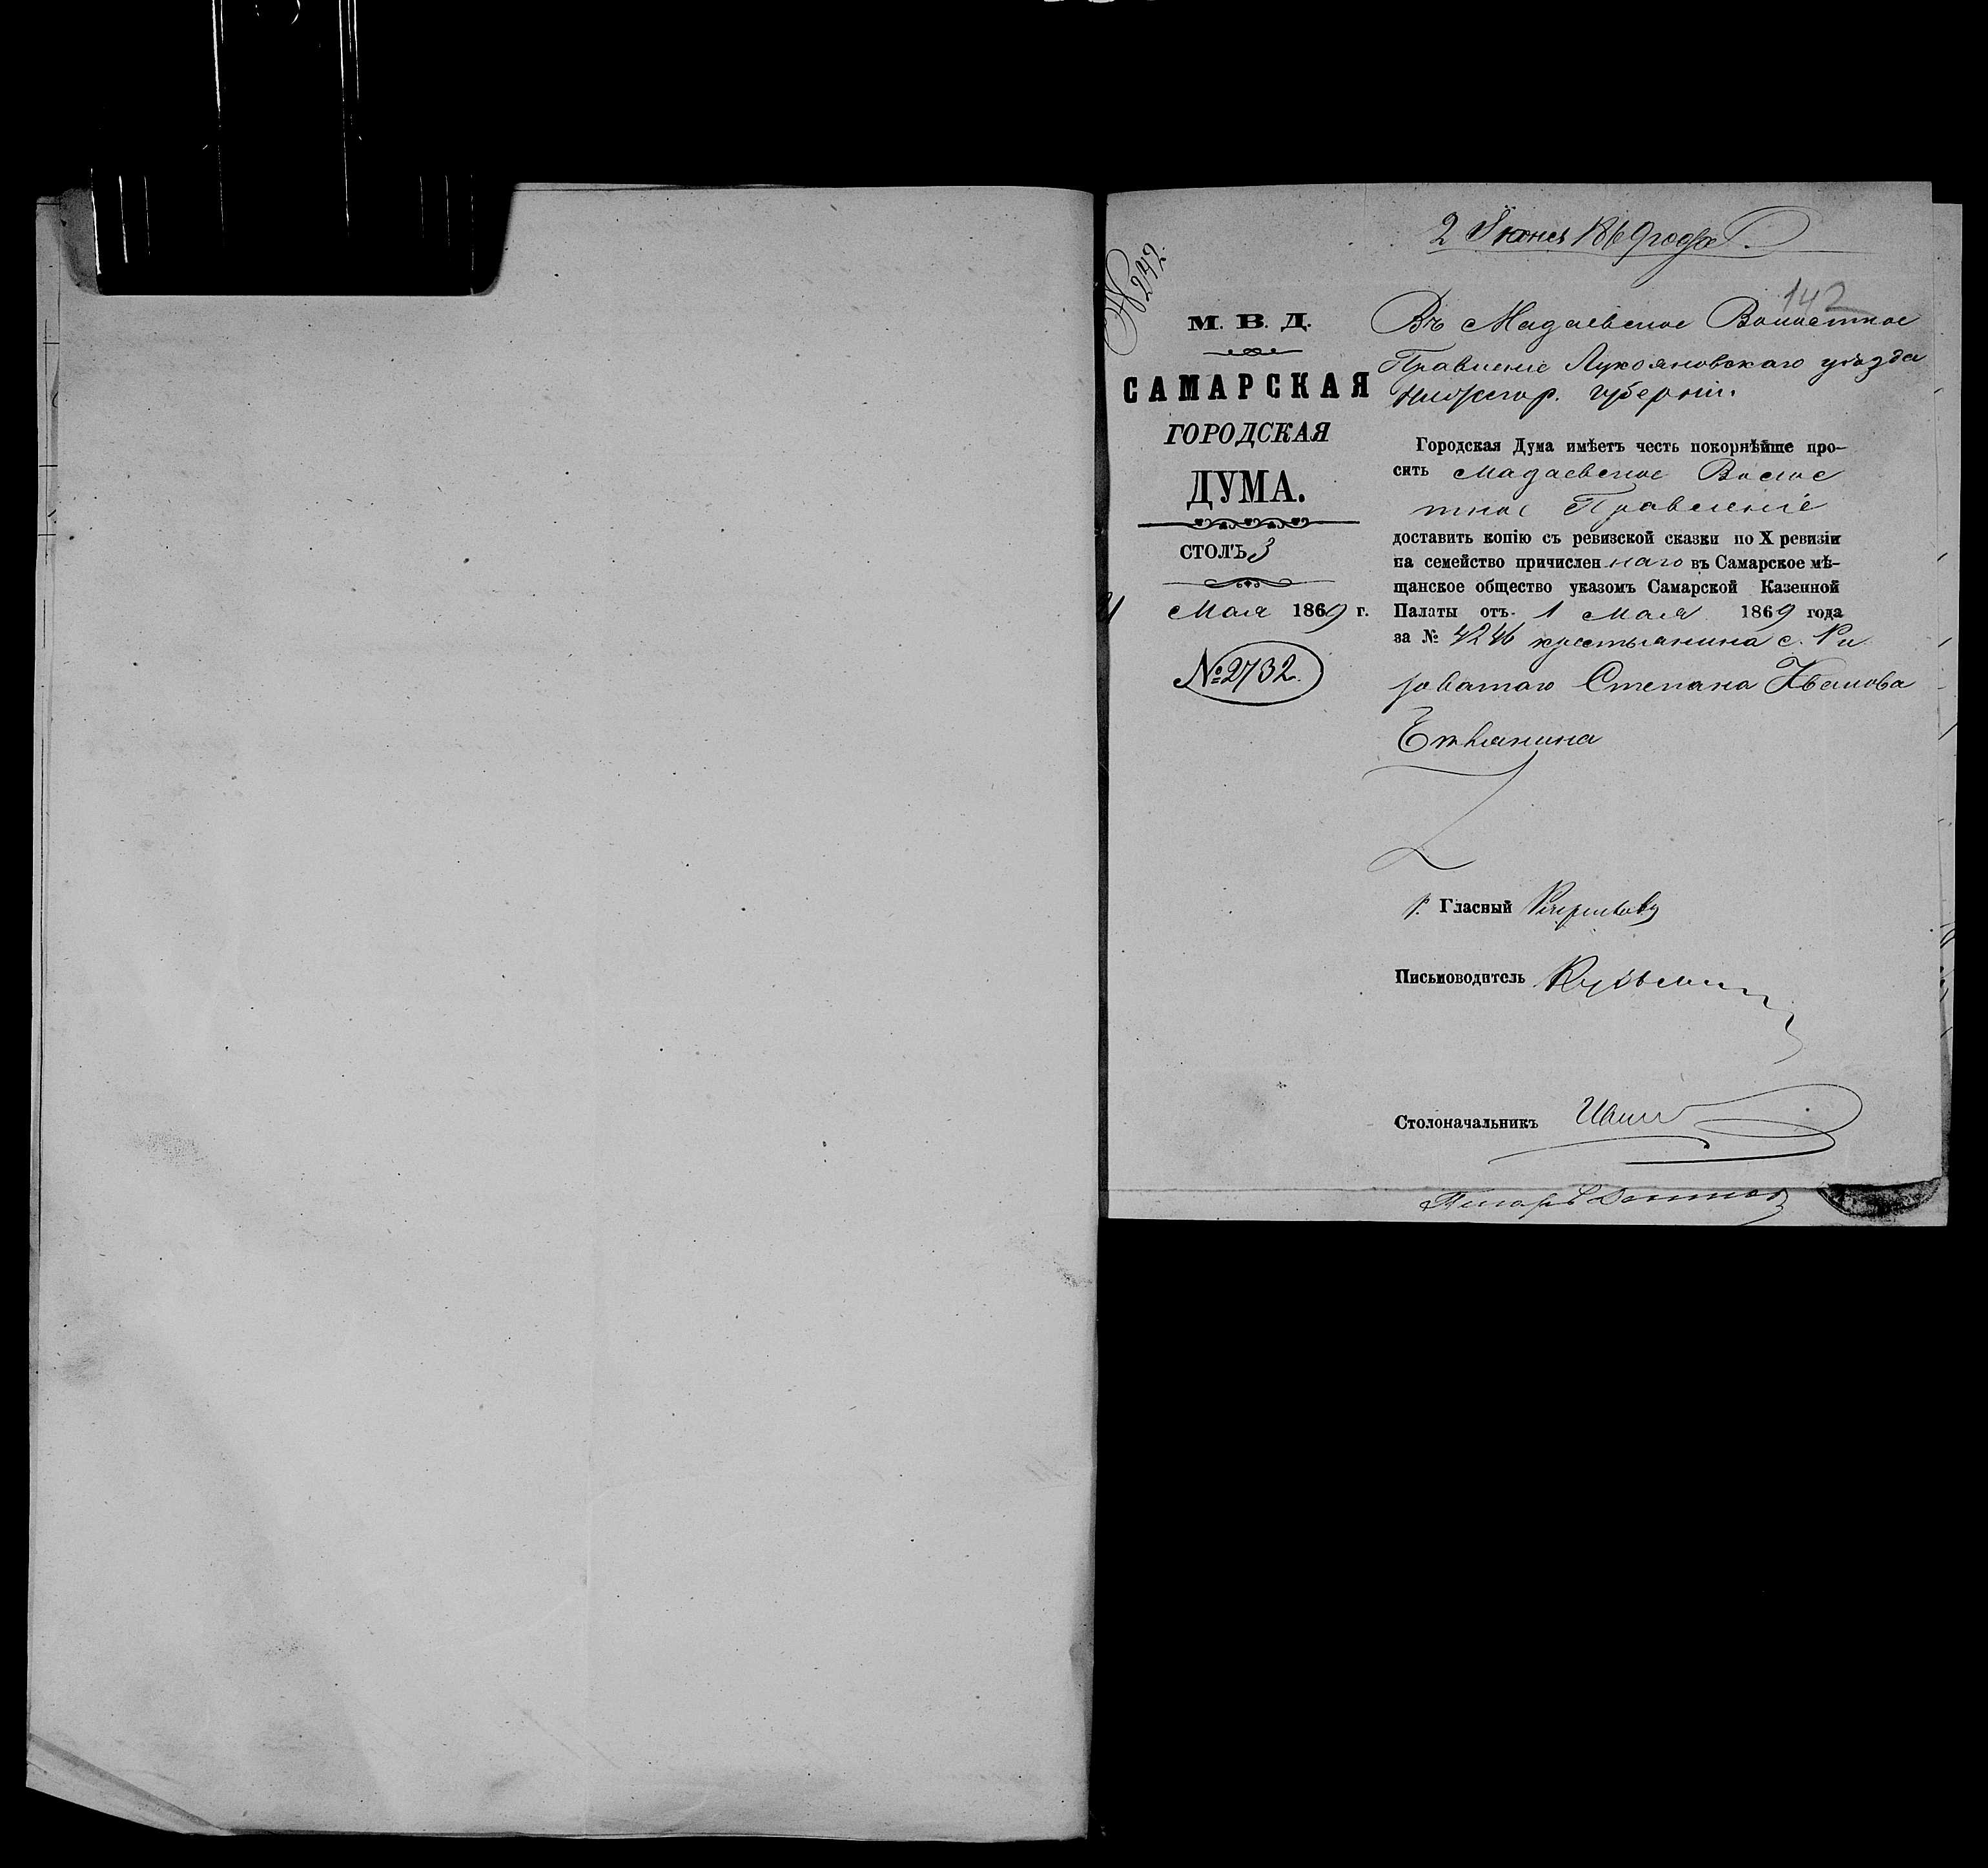 2 Июня 1869 года.
№ 242
142
М. В. Д.
САМАРСКАЯ
ГОРОДСКАЯ
ДУМА.
СТОЛЪ 3
Мая 1869 г.
№ 2732.
Въ Мадаевское Волостное
Правление Лукояновскаго уѣзда
Нижегор. губерніи.
Городская Дума имѣетъ честь покорнѣйше про-
сить Мадаевское Волос
тное Правленіе
доставить копію съ ревизской сказки по X ревизіи
на семейство причисленнаго въ Самарское мѣ-
щанское общество указомъ Самарской Казенной
Палаты отъ 1 Мая 1869 года
за № 4246 крестьянина с.
Степана Иванова
Гласный
Письмоводитель
Столоначальникъ